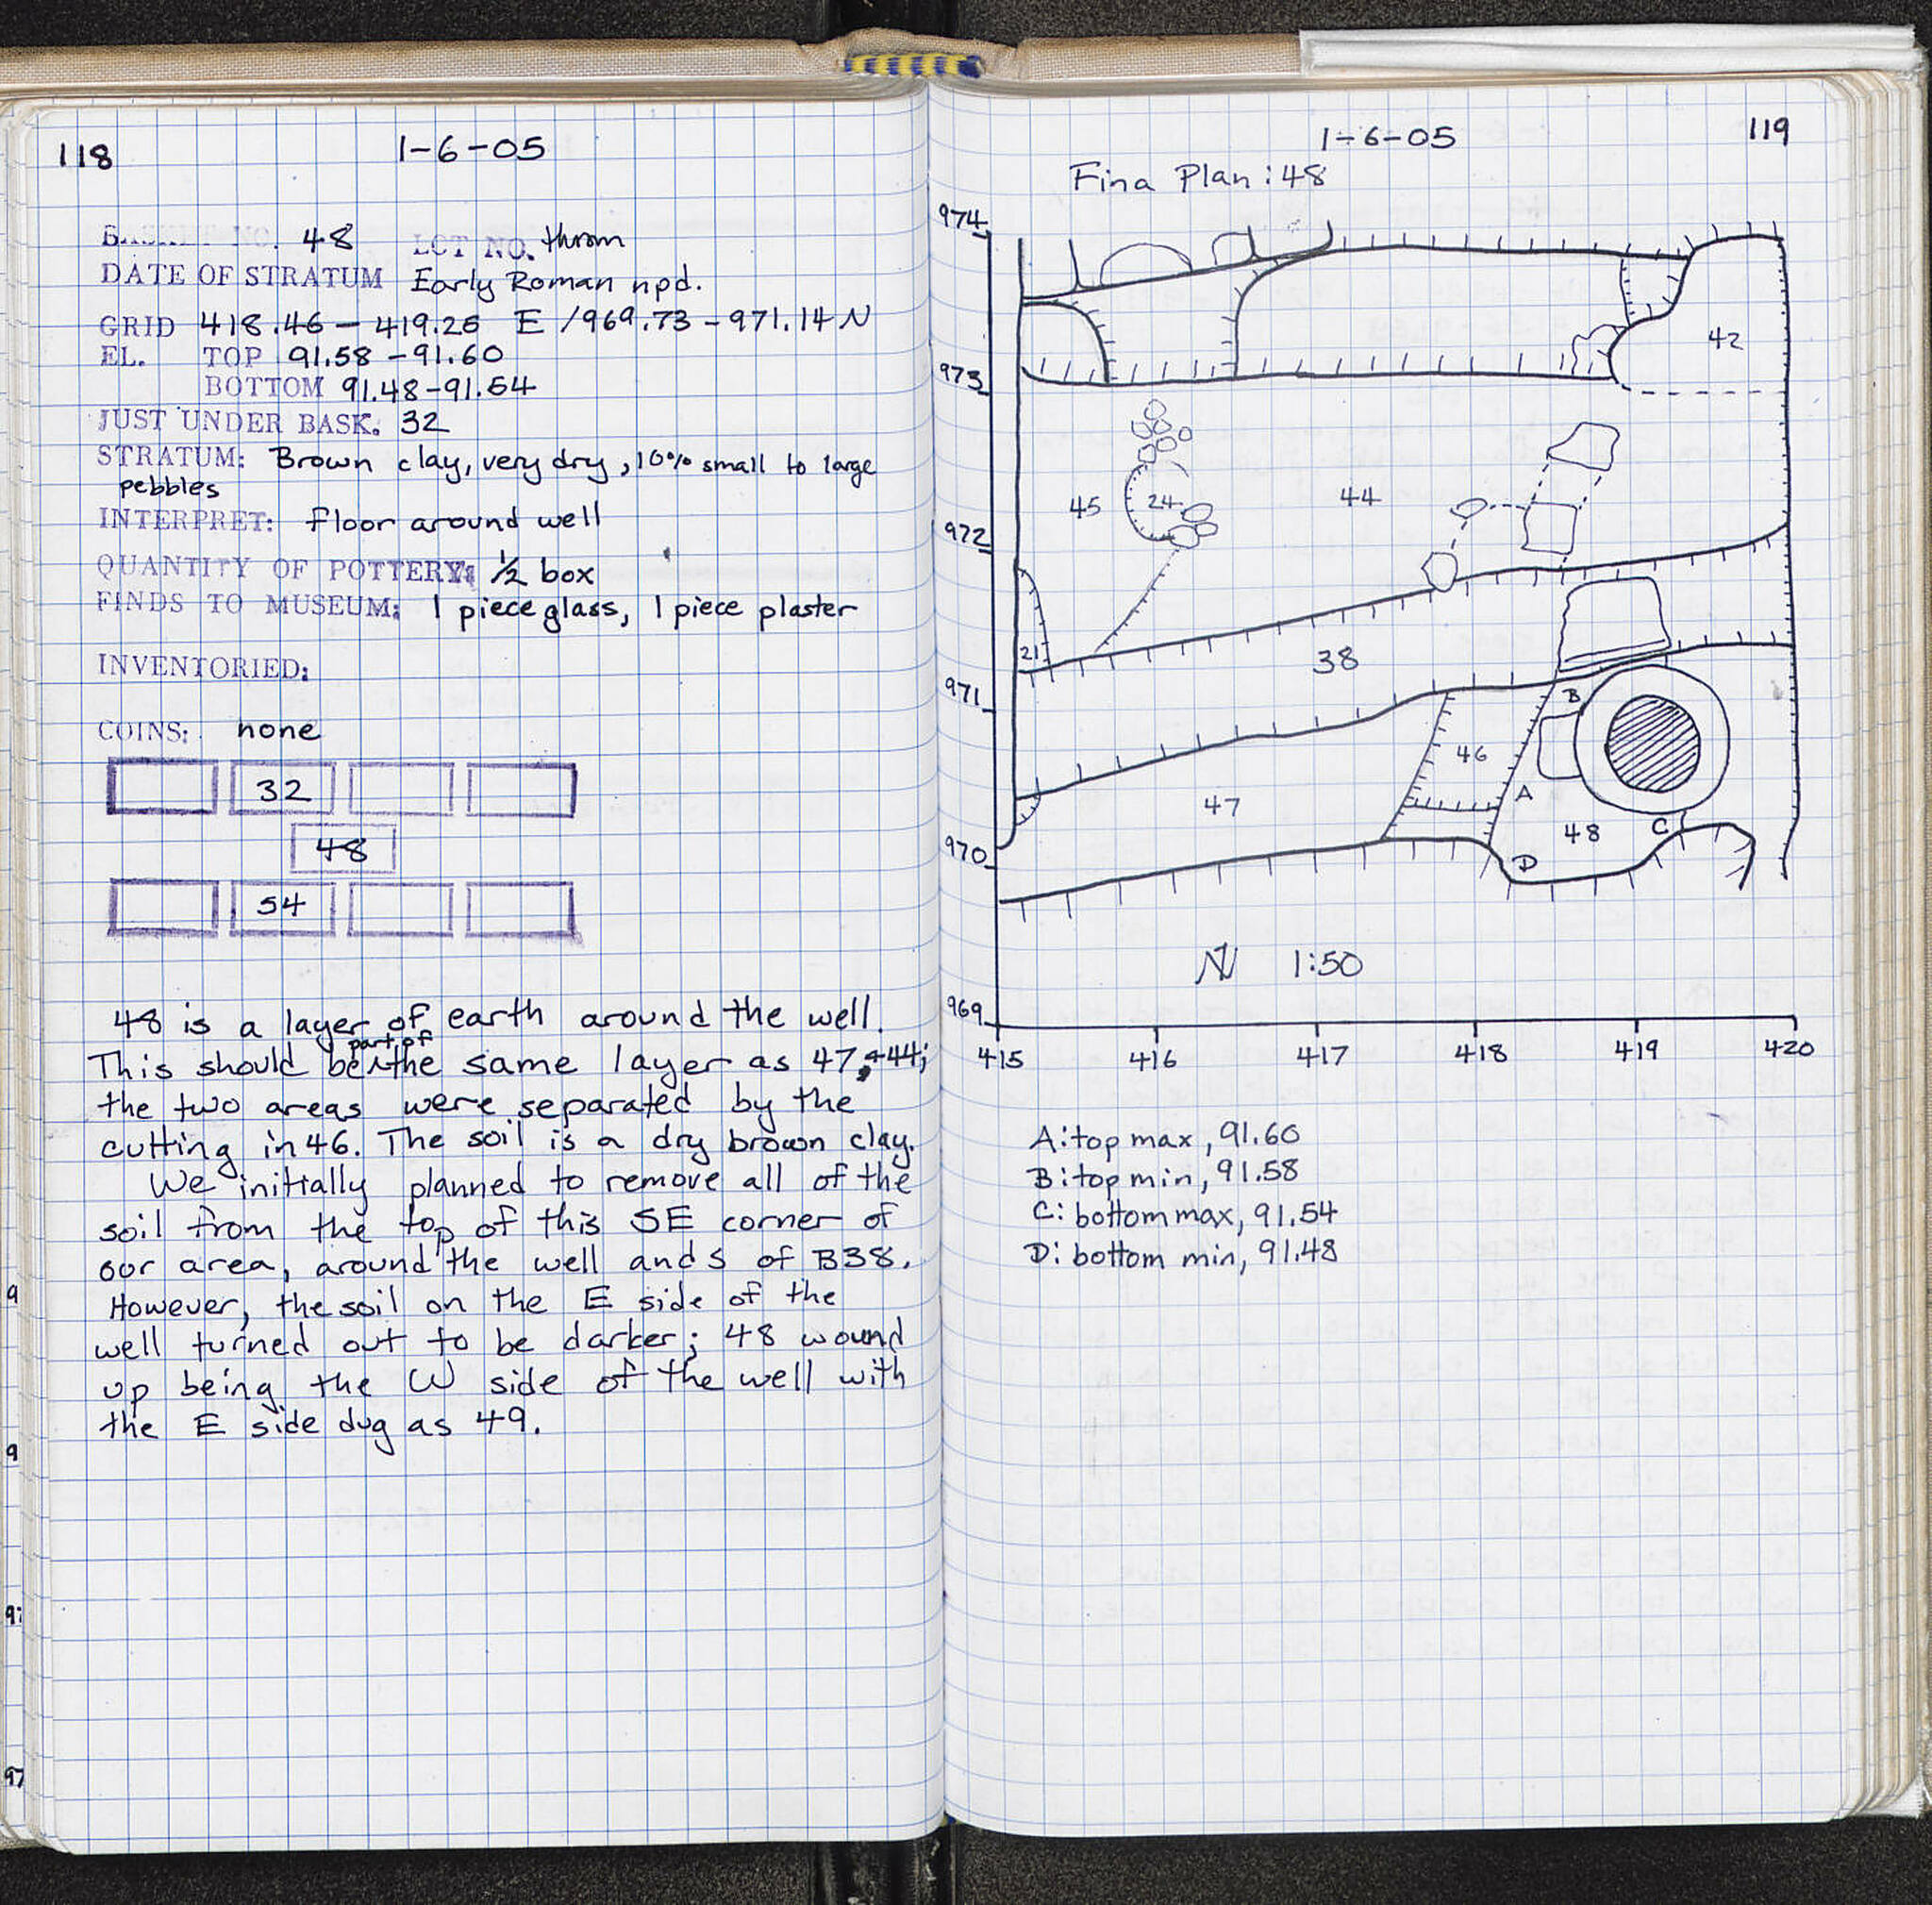 118
1-6-05
BASKET NO. 48 LOT NO. thrown
DATE OF STRATUM Early Roman npd.
GRID 418.46 - 419.26 E / 969.73 - 971.14 N
EL. TOP 91.58 - 91.60
BOTTOM 91.48 - 91.54
JUST UNDER BASK. 32
STRATUM: Brown clay, very dry, 10% small to large
pebbles
INTERPRET: floor around well
QUANTITY OF POTTERY: 1/2 box
FINDS TO MUSEUM: 1 piece glass, 1 piece plaster
INVENTORIED:
COINS: none
32
48
54
48 is a layer of earth around the well.
This should be part of the same layer as 47 + 44;
the two areas were separated by the
cutting in 46. The soil is a dry brown clay.
We initially planned to remove all of the
soil from the top of this SE corner of
our area, around the well and S of B38.
However, the soil on the E side of the
well turned out to be darker; 48 wound
up being the W side of the well with
the E side dug as 49.
9
9
97
97
1-6-05
119
Fina Plan: 48
974
973
972
971
970
969
42
45
24
44
21
38
B
46
A
47
48
C
D
N 1:50
415 416 417 418 419 420
A: top max, 91.60
B: top min, 91.58
C: bottom max, 91.54
D: bottom min, 91.48